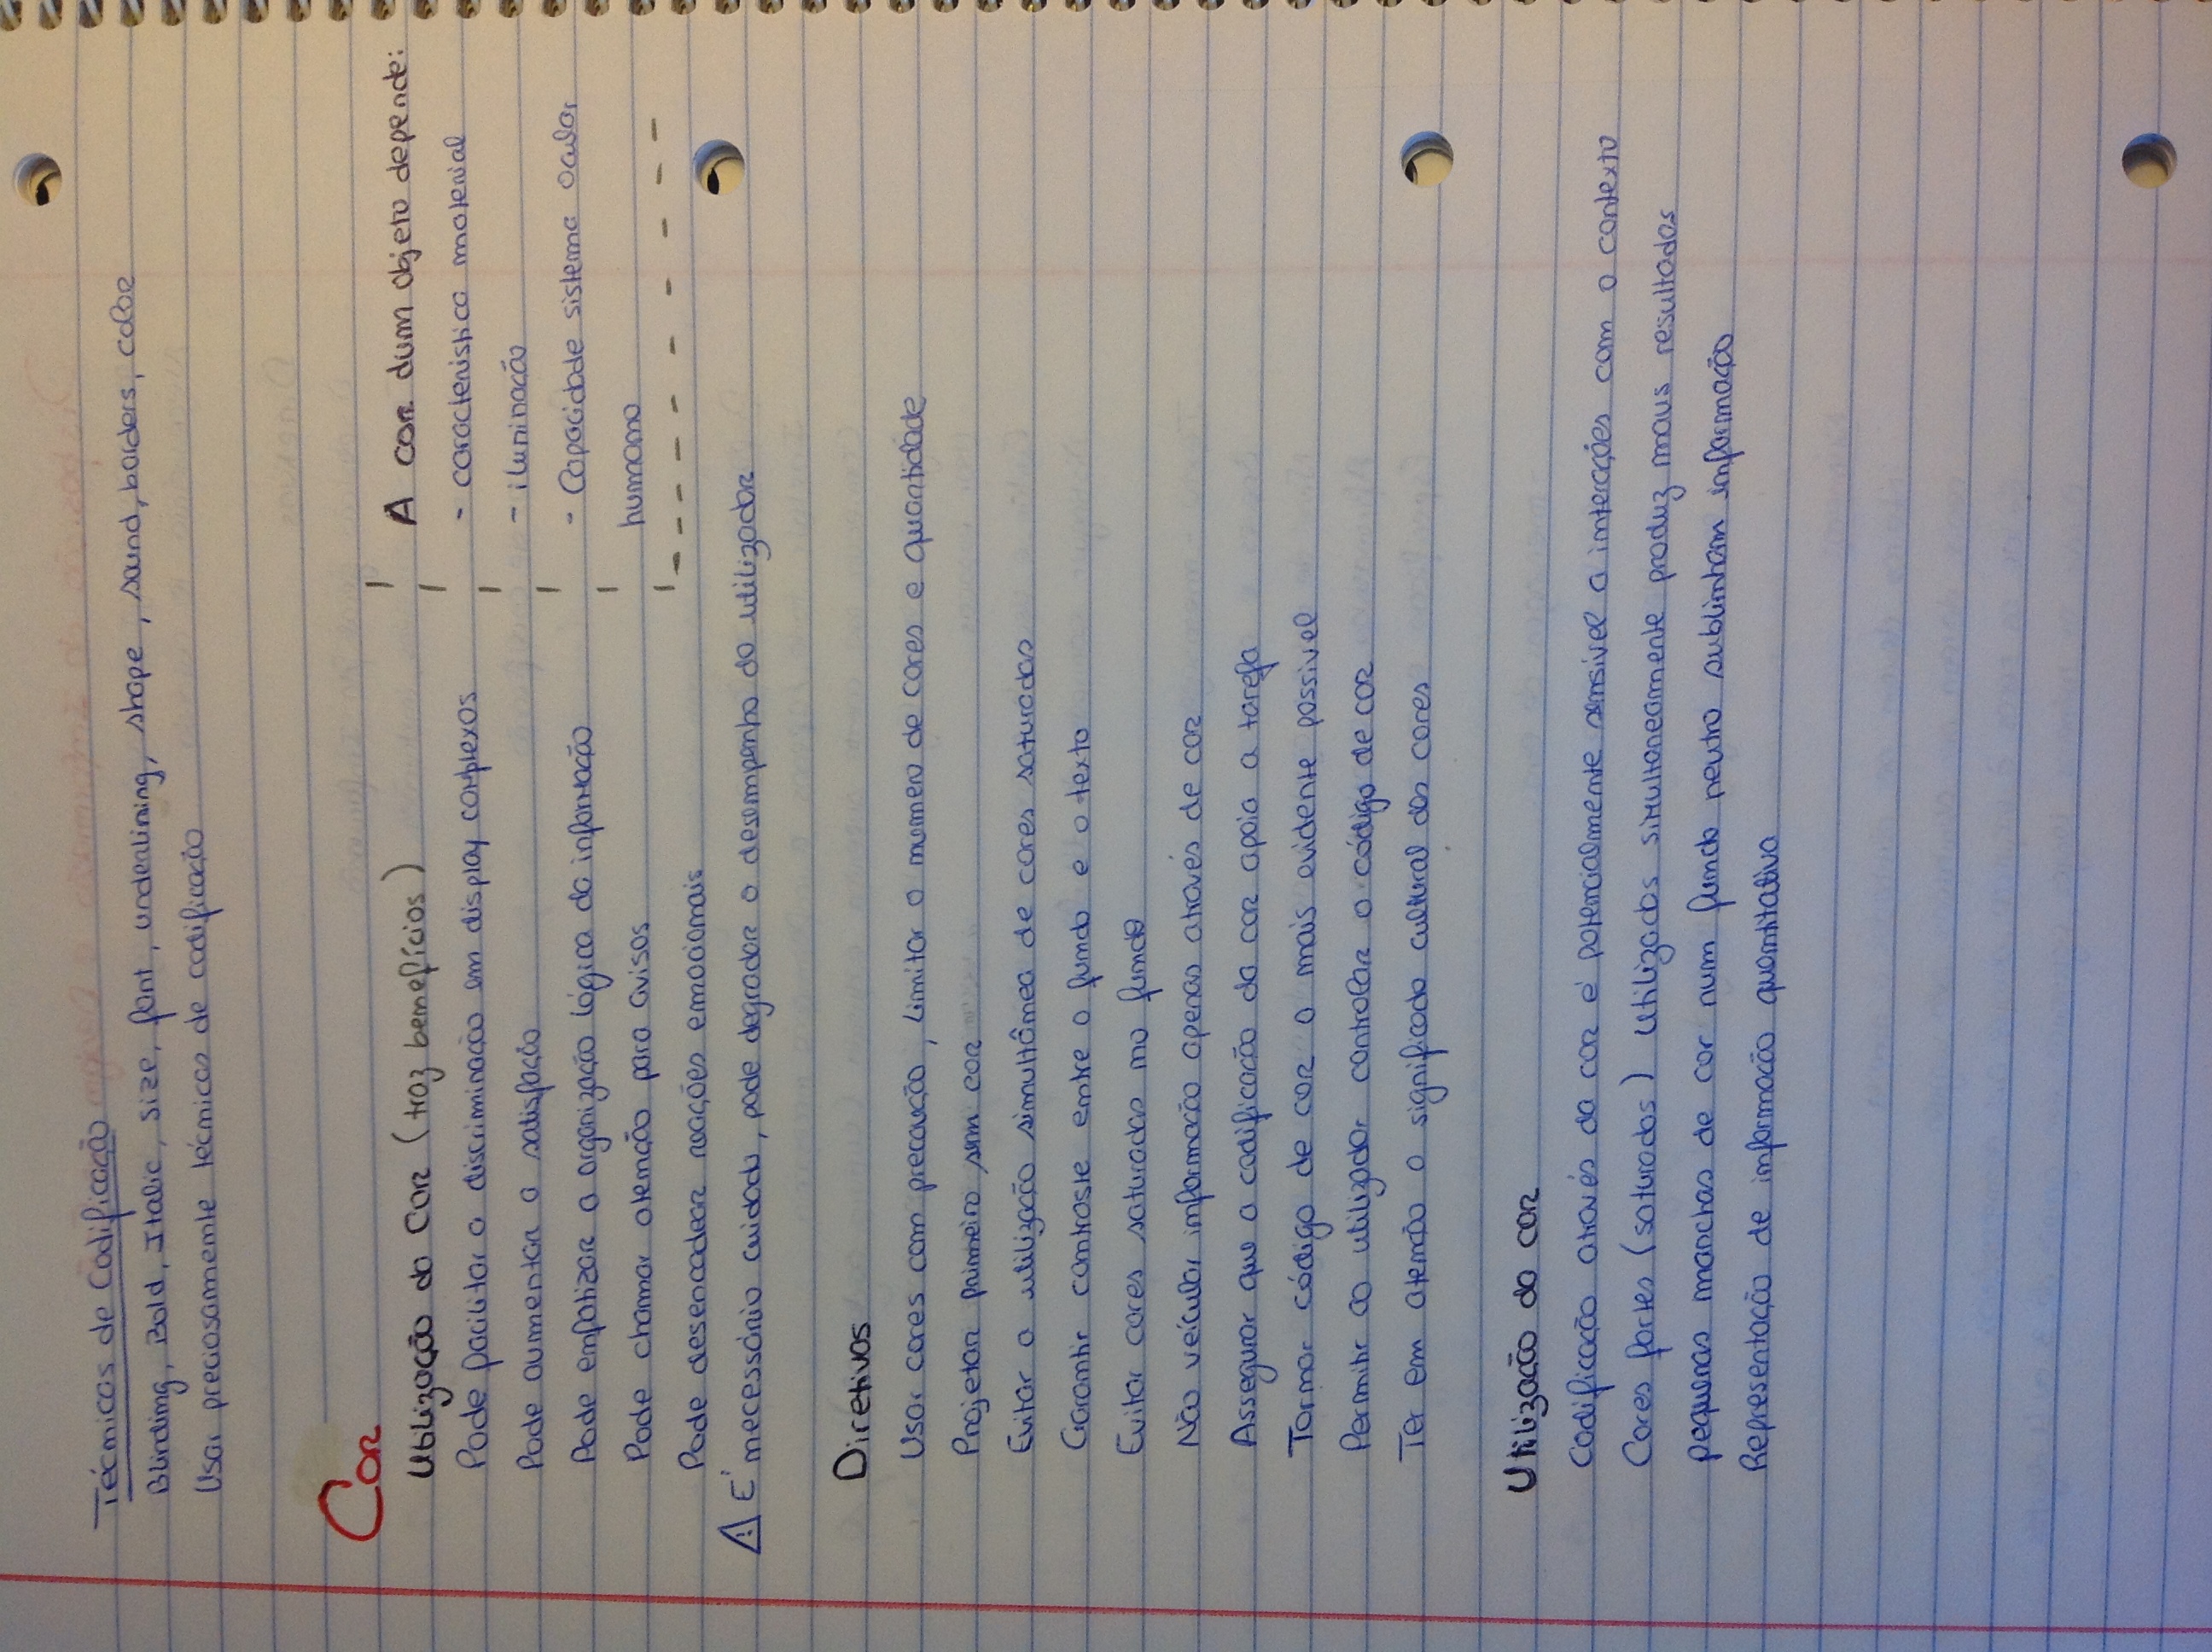 Técnicas de Codificação
Blinding, Bold, Italic, size, font, underlining, shape, sound, borders, color
Usar preciosamente técnicas de codificação
Cor
Utilização da Cor (traz benefícios)
Pode facilitar a discriminação em display complexos
Pode aumentar a satisfação
Pode enfatizar a organização lógica da informação
Pode chamar atenção para avisos
Pode desencadear reações emocionais
A cor dum objeto depende:
- característica material
- iluminação
- Capacidade sistema ocular
humano
⚠ É necessário cuidado, pode degradar o desempenho do utilizador
Diretivas
Usar cores com precaução, limitar o numero de cores e quantidade
Projetar primeiro sem cor
Evitar a utilização simultânea de cores saturadas
Garantir contraste entre o fundo e o texto
Evitar cores saturadas no fundo
Não veícular informação apenas através de cor
Assegurar que a codificação da cor apoia a tarefa
Tornar código de cor o mais evidente possivel
Permitir ao utilizador controlar o código de cor
Ter em atenção o significado cultural das cores
Utilização da cor
Codificação através da cor é potencialmente sensivel a interações com o contexto
Cores fortes (saturadas) utilizadas simultaneamente produz maus resultados
pequenas manchas de cor num fundo neutro sublinham informação
Representação de informação quantitativa